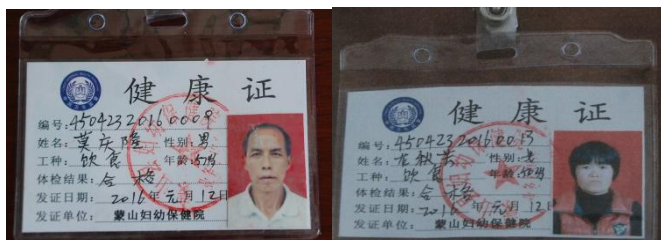 健康证
编号:4504232016 0008
姓名:莫庆隆 性别:男
工种:饮食 年龄:57岁
体检结果:合格
发证日期:2016年元月12日
发证单位:蒙山妇幼保健院
健康证
编号:4504232016 0013
姓名: 性别:女
工种:饮食 年龄:50岁
体检结果:合格
发证日期:2016年元月12日
发证单位:蒙山妇幼保健院